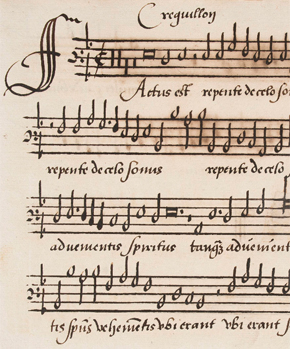 Crequillon
Factus est repente de celo so
repente de celo sonus repente de celo
aduenientis spiritus tanq̃ aduenient
tis spũs vehemẽtis vbi erant vbi erant s